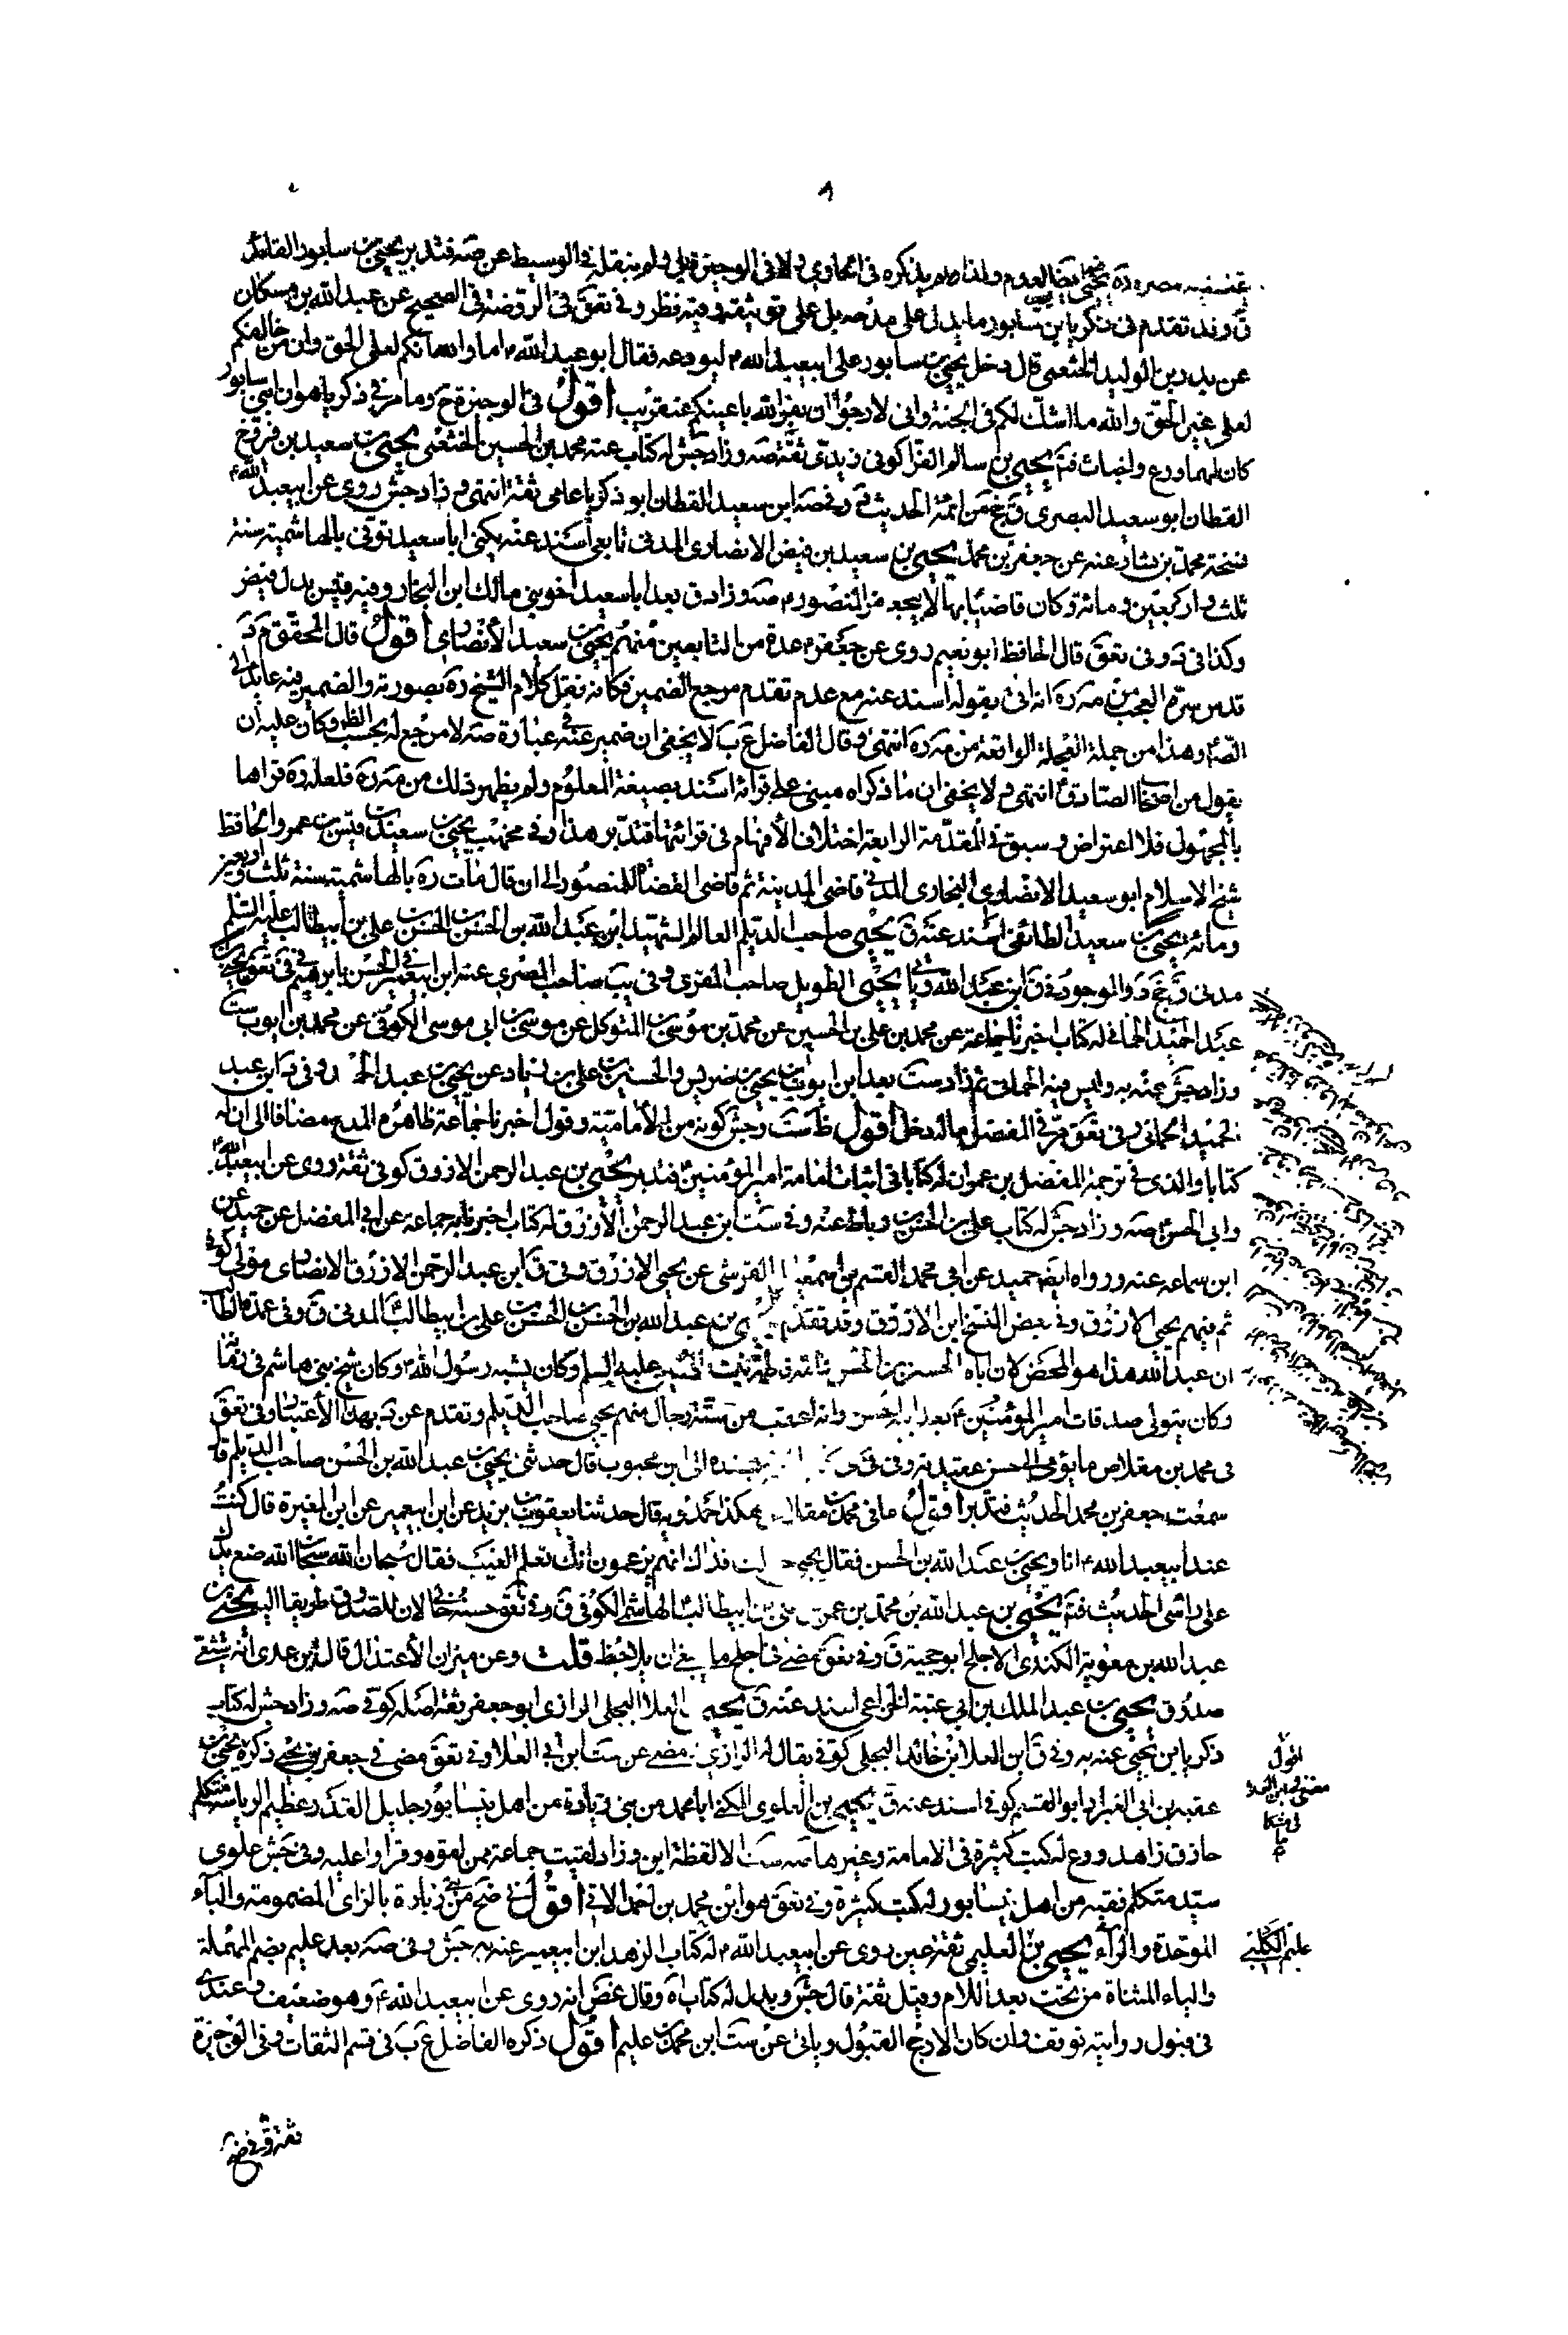 ولذا لم يذكره في الحاوي ولا في الوجيزة ولم ينقله في الوسيط عن صه فتدبر يحيى بن سابور القائد
ق وقد تقدم في زكريا بن سابور ما يدل على مدحه بل على توثيقه وفيه نظر وفي تعق في الروضة في الصحيح عن عبد الله بن مسكان
عن بدر بن الوليد الخثعمي قال دخل يحيى بن سابور على ابيعبد الله ع ليودعه فقال ابو عبد الله ع اما والله انكم لعلى الحق وان من خالفكم
لعلى غير الحق والله ما اشك لكم في الجنة واني لارجو ان يقر الله باعينكم عن قريب اقول في الوجيزة ح وما مر في ذكر ياهو ان ابني سابور
كان لهما ورع واخبات فتم يحيى بن سالم الفرا كوفي زيدي ثقة صه وزاد جش له كتاب عنه محمد بن الحسين الخثعمي يحيى بن سعيد بن فروخ
القطان ابو سعيد البصري ق جخ من ائمة الحديث د وفي صه ابن سعيد القطان ابو زكريا عامي ثقة انتهى وزاد جش روى عن ابيعبد الله ع
نسخة محمد بن بشار عنه عن جعفر بن محمد يحيى بن سعيد بن فيض الانصاري المدني تابعي اسند عنه يكنى ابا سعيد توفي بالهاشمية سنة
ثلث واربعين ومائة وكان قاضيا بها لابيجعفر المنصور صه وزاد ق بعد ابا سعيد اخو بني مالك ابن النجار وفيه قيس بدل فيض
وكذا في د وفي تعق قال الحافظ ابو نعيم روى عن جعفر ع عدة من التابعين منهم يحيى بن سعيد الأنصاري اقول قال المحقق م د
قدس سره العجب من مه ره انه اتى بقوله اسند عنه مع عدم تقدم مرجع الضمير فكانه نقل كلام الشيخ ره بصورته والضمير فيه عائد الى
الصادق وهذا من جملة العجلة الواقعة من مه ره انتهى وقال الفاضل ع ب لا يخفى ان ضمير عنه في عبارة صه لا مرجع له بحسب الظ وكان عليه ان
يقول من اصحاب الصادق ع انتهى ولا يخفى ان ما ذكراه مبني على قرائة اسند بصيغة المعلوم ولم يظهر ذلك من مه ره فلعله ره قراها
بالمجهول فلا اعتراض وسبق في المقدمة الرابعة اختلاف الأفهام في قرائتها فتدبر هذا وفي مخهب يحيى بن سعيد بن قيس بن عمرو الحافظ
شيخ الاسلام ابو سعيد الانصاري النجاري المدني قاضي المدينة ثم قاضي القضاة للمنصور الى ان قال مات ره بالهاشمية سنة ثلث واربعين
ومائة يحيى بن سعيد الطائفي اسند عنه ق يحيى صاحب الديلم العالم الشهيد ابن عبد الله بن الحسن بن الحسن بن علي بن ابيطالب عليه السلم
مدني ق جخ د والموجود في ق ابن عبد الله وياتي يحيى الطويل صاحب المقري وفي يب صاحب البصري عنه ابن ابيعمير في الحسن بابرهيم في تعق يحيى بن
عبد الحميد الحماني له كتاب اخبرنا جماعة عن محمد بن علي بن الحسين عن محمد بن موسى بن المتوكل عن موسى بن ابي موسى الكوفي عن محمد بن ايوب ست
وزاد جش عنه به وليس فيه الحماني ثم زاد ست بعد ابن ايوب بن يحيى بن ضريس والحسين بن علي بن زياد عن يحيى بن عبد الحم د وفي د ابن عبد
الحميد الحماني وفي تعق مر في المفضل ماله دخل اقول ظ ست وجش كونه من الأمامية وقول اخبرنا جماعة ظاهره المدح مضافا الى ان له
كتابا والذي في ترجمة المفضل بن عمر ان له كتابا في اثبات امامة امير المؤمنين ع فتدبر يحيى بن عبد الرحمن الازرق كوفي ثقة روى عن ابيعبد الله ع
وابي الحسن ع صه وزاد جش له كتاب علي بن الحسن بن رباط عنه وفي ست ابن عبد الرحمن الأزرق له كتاب اخبرنا به جماعة عن ابي المفضل عن حميد عن
ابن سماعه عنه ورواه ايض حميد عن ابي محمد القسم بن اسمعيل القرشي عن يحيى الازرق وفي ق ابن عبد الرحمن الازرق الانصاري مولى كوفي
ثم فيهم يحيى الازرق وفي بعض النسخ ابن الازرق وقد تقدم يحيى بن عبد الله بن الحسن بن الحسن بن علي بن ابيطالب المدني ق وفي عمدة الطالب
ان عبد الله هذا هو المحض لان اباه الحسن بن الحسن وامه فاطمة بنت الحسين عليه السلم وكان يشبه رسول الله ص وكان شيخ بني هاشم في زمانه
وكان يتولى صدقات امير المؤمنين ع بعد ابيه الحسن وانه اعقب من ستة رجال منهم يحيى صاحب الديلم وتقدم عن د بهذا الأعتبار وفي تعق
في محمد بن مقلاص ما يؤمي الى حسن عقيدته وفي بسنده الى ابن محبوب قال حدثني يحيى بن عبد الله بن الحسن صاحب الديلم قال
سمعت جعفر بن محمد الحديث فتدبر اقول ما في محمد بن مقلاص هكذا حمدويه قال حدثنا يعقوب بن يزيد عن ابن ابيعمير عن ابن المغيرة قال كنت
عند ابيعبد الله ع انا ويحيى بن عبد الله بن الحسن فقال يحيى جعلت فداك انهم يزعمون انك تعلم الغيب فقال سبحان الله سبحان الله ضع يدك
على راسي الحديث فتم يحيى بن عبد الله بن محمد بن عمر بن علي بن ابيطالب الهاشمي الكوفي ق وفي تعق حسنه خالي لان للصدوق طريقا اليه يحيى بن
عبد الله بن معوية الكندي الاجلح ابو حجية ق وفي تعق مضى في اجلح ما ينبغي ان يلاحظ قلت وعن ميزان الأعتدال قال ابن عدي انه شيعي
صدوق يحيى بن عبد الملك بن ابي عتبة الخزاعي اسند عنه ق يحيى بن العلا البجلي الرازي ابو جعفر ثقة اصله كوفي صه وزاد جش له كتاب
زكريا بن يحيى عنه به وفي ق ابن العلا بن خالد البجلي كوفي يقال له الرازي مضى عن ست ابن ابي العلا وفي تعق مضى في جعفر بن يحيى ذكره يحيى بن
عقبه بن ابي العيزار ابو القسم كوفي اسند عنه ق يحيى بن العلوي المكنى ابا محمد من بني زيادة من اهل نيسابور جليل القدر عظيم الرياسة متكلم
حاذق زاهد ورع له كتب كثيرة في الامامة وغيرها صه ست الا لفظة ابن وزاد لقيت جماعة ممن لقوه وقراوا عليه وفي جش علوي
سيد متكلم فقيه من اهل نيسابور له كتب كثيرة وفي تعق هو ابن محمد بن احمد الاتي اقول في ضح من بني زيادة بالزاي المضمومة والباء
الموحدة والراء يحيى بن العليمي ثقة عين روى عن ابيعبد الله ع له كتاب الزهد ابن ابيعمير عنه به جش وفي صه بعد عليم بضم المهملة
والياء المثناة من تحت بعد اللام وقيل ثقة قال جش وبدل له كتاب اه وقال غض انه روى عن ابيعبد الله ع وهو ضعيف وعندي
في قبول روايته توقف وان كان الارجح القبول وياتي عن ست ابن محمد بن عليم اقول ذكره الفاضل ع ب في قسم الثقات وفي الوجيزة
اقول
عليم الكلبي
ثقة وفي ضه